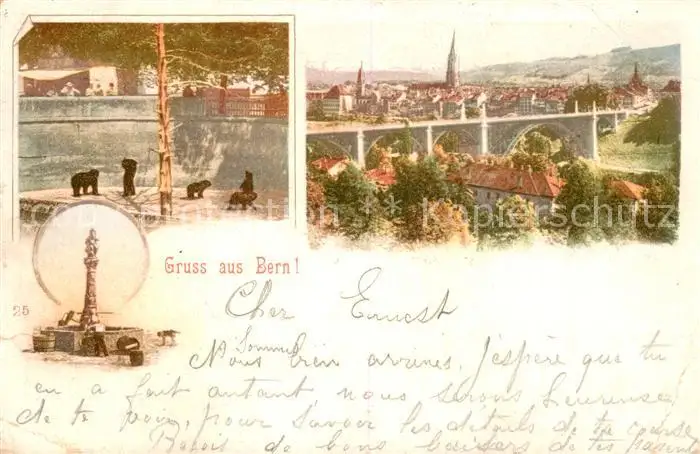 Gruss aus Bern!
25
Cher Ernest
Sommes
Nous bien arrivées, j'espère que tu
en a fait autant, nous serons heureuse
de te voir, pour savoir les détails de ta course
Reçois de bons baisers de tes